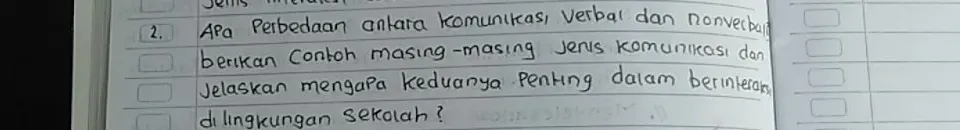 2. Apa Perbedaan antara komunikasi verbal dan nonverbal
berikan Contoh masing-masing Jenis komunikasi dan
Jelaskan mengapa keduanya Penting dalam berinteraksi
di lingkungan sekolah?